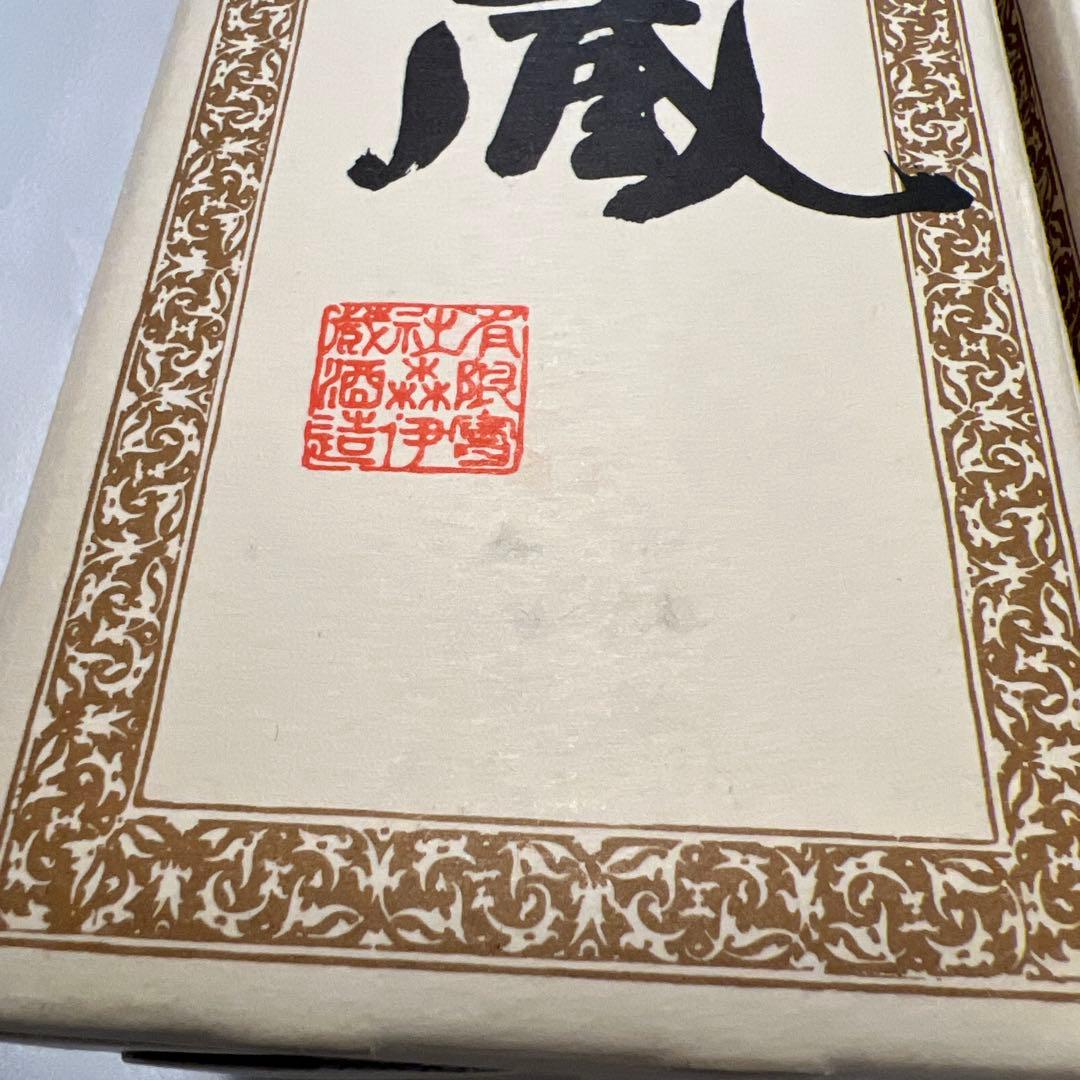 蔵
有限會
社森伊
蔵酒造